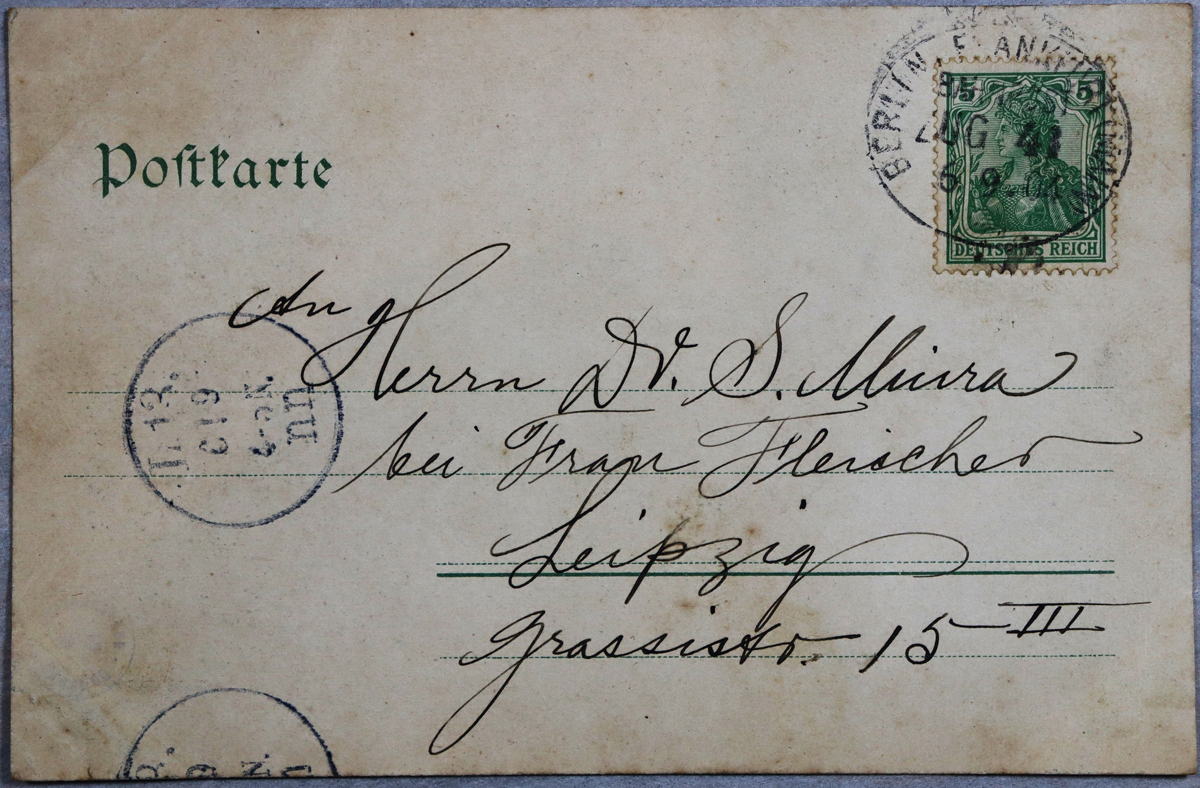 Postkarte
BERLIN FRANKFU
ZUG
6 9 04
5 5
DEUTSCHES REICH
An
Herrn Dr. S. Miura
bei Frau Fleischer
Leipzig
Grassistr. 15 III